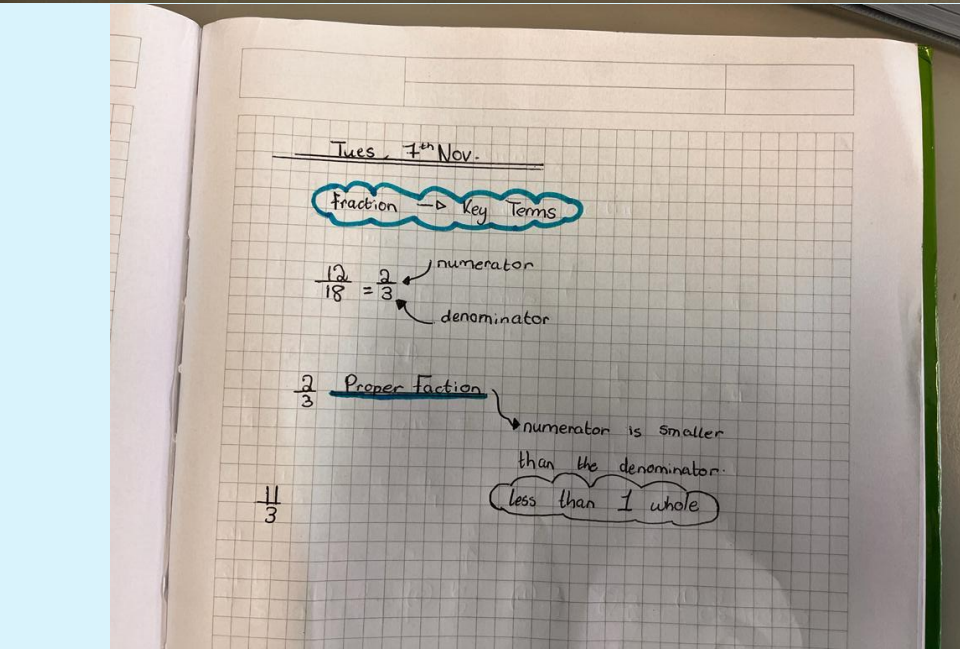 Tues. 7th Nov.
Fraction → Key Terms
numerator
12/18 = 2/3
denominator
2/3 Proper faction
numerator is smaller
than the denominator.
less than 1 whole
11/3